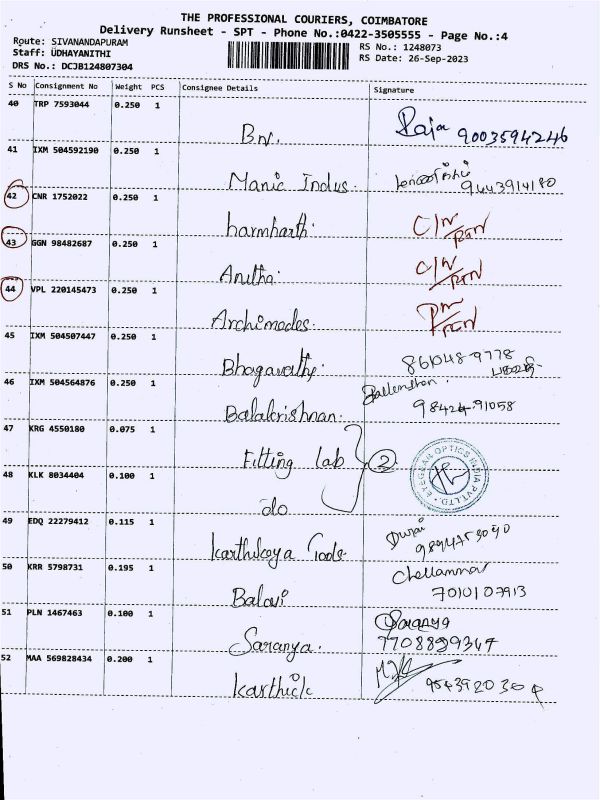 THE PROFESSIONAL COURIERS, COIMBATORE
Delivery Runsheet - SPT - Phone No.:0422-3505555 - Page No.:4
Route: SIVANANDAPURAM RS No.: 1248073
Staff: UDHAYANITHI RS Date: 26-Sep-2023
DRS No.: DCJB124807304
S No Consignment No Weight PCS Consignee Details Signature
40 TRP 7593044 0.250 1
Bn. Raja 9003594246
41 IXM 504592190 0.250 1
Manic Indus. 9443914180
42 CNR 1752022 0.250 1
harmharth. C/N RTN
43 GGN 98482687 0.250 1
Anitha. C/N RTN
44 VPL 220145473 0.250 1
Archimades. RTN
45 IXM 504507447 0.250 1
Bhagavathy. 86048-9778
46 IXM 504564876 0.250 1
Balakrishnan. 98424-91058
47 KRG 4550180 0.075 1
Fitting Lab 2 EYEGEAR OPTICS INDIA PVT LTD
48 KLK 8034404 0.100 1
do
49 EDQ 22279412 0.115 1
Karthikeya Tools Durai
50 KRR 5798731 0.195 1
Balaji Chellammal 7010107913
51 PLN 1467463 0.100 1
Saranya. Saranya 7708889347
52 MAA 569828434 0.200 1
Karthick